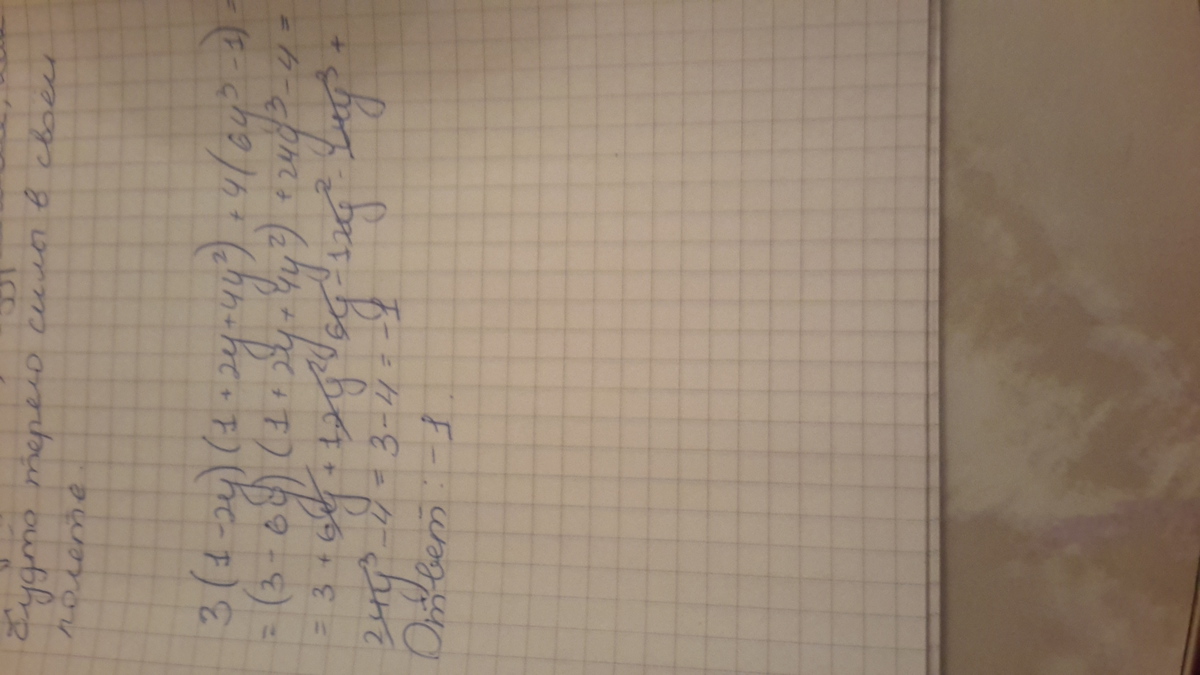 будто теряло силы в своем
полете.
3(1-2y)(1+2y+4y²)+4(6y³-1)=
=(3-6y)(1+2y+4y²)+24y³-4=
=3+6y+12y²-6y-12y²-24y³+
24y³-4=3-4=-1
Ответ: -1.